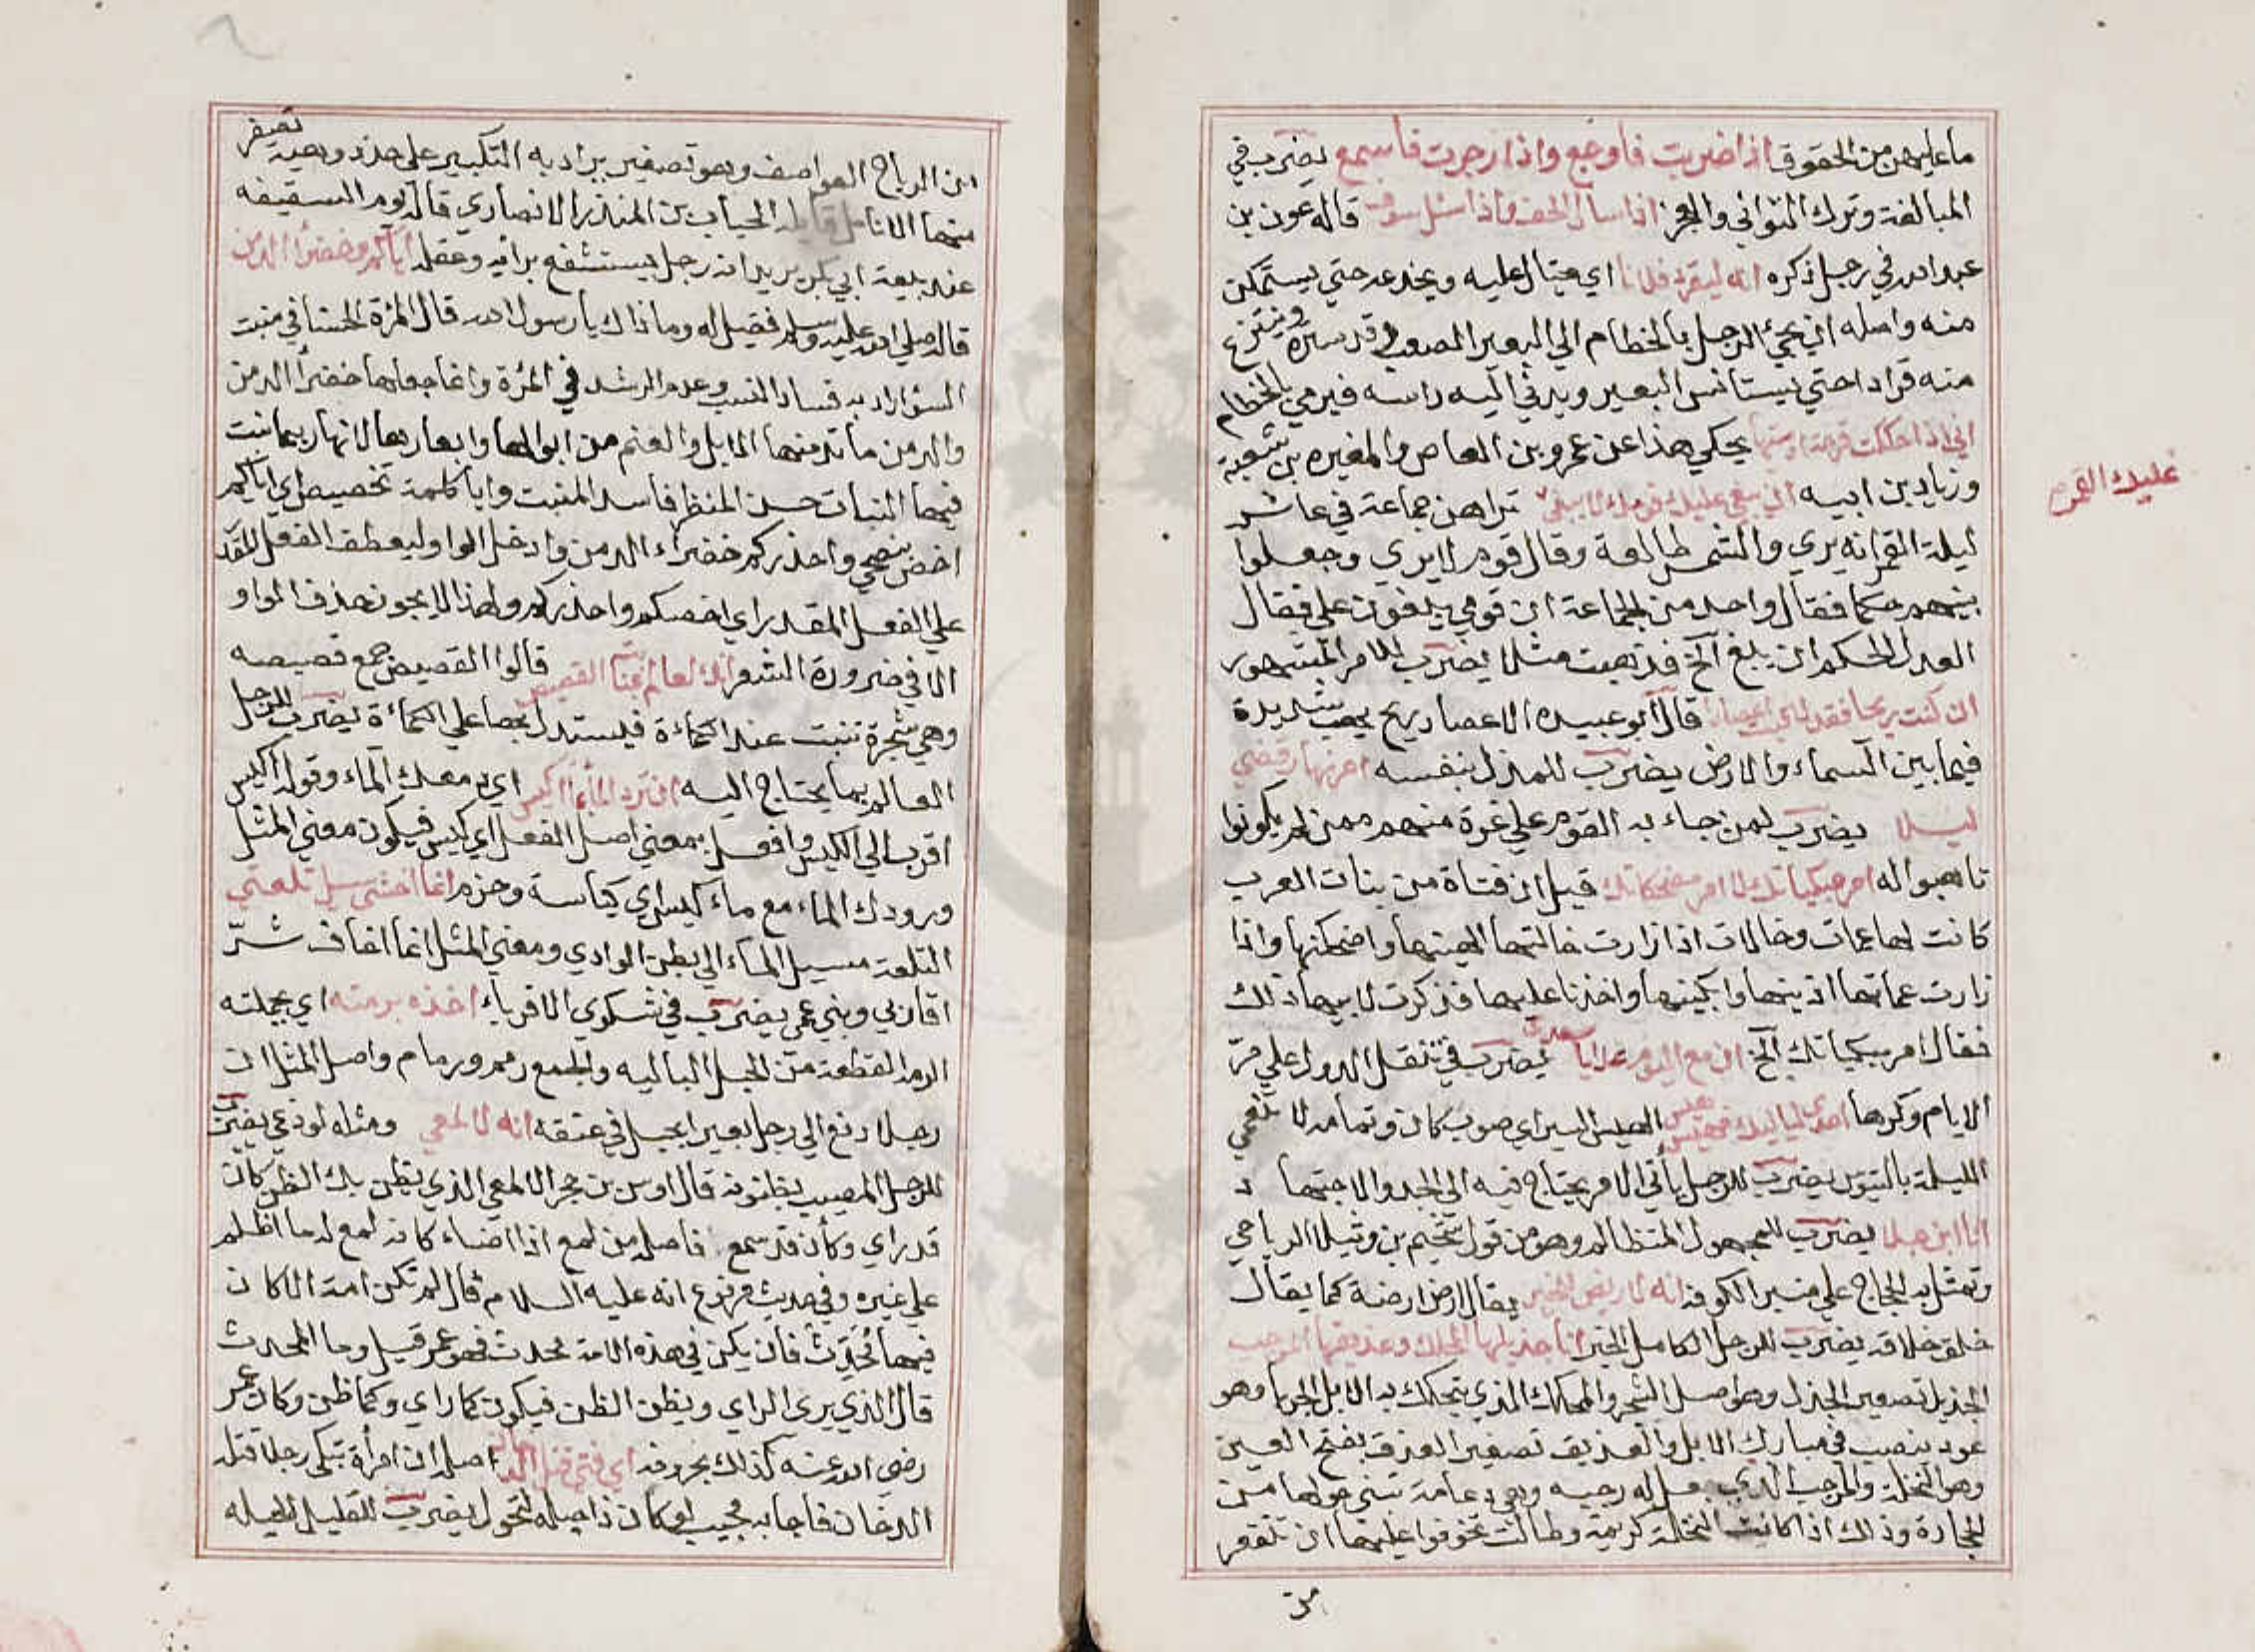 ما عليهن من الحقوق اذا ضربت فاوجع واذا زجرت فاسمع يضرب في
المبالغة وترك التواني والعجز اذا سال الحف واذا سئل سوف قاله عون بن
عبد الله في رجل ذكره انه ليقرد فلانا اي يحتال عليه ويخدعه حتي يستمكن
منه واصله ان يجئ الرجل بالخطام الي البعير الصعب قد ستره وينتزع
منه قرادا حتي يستانس البعير ويدني اليه راسه فيرمي بالخطام
اني اذا حككت قرحة ادميتها يحكي هذا عن عمرو بن العاص والمغيره بن شعبة
وزياد بن ابيه ان يبغي عليك قومك لا يبغي تراهن جماعة في عاشر
عليك القمر
ليلة القمر انه يري والشمس طالعة وقال قوم لا يري وجعلوا
بينهم حكما فقال واحد من الجماعة ان قومي يبغون علي فقال
العدل الحكم ان يبغ الخ فذهبت مثلا يضرب للامر المشهور
ان كنت ريحا فقد لقيت اعصارا قال ابو عبيده الاعصار ريح يهب شديدة
فيما بين السماء والارض يضرب للمدل بنفسه امر نهار قضي
ليلا يضرب لمن جاء به القوم علي غرة منهم ممن لم يكونوا
تاهبوا له امر مبكياتك لا امر مضحكاتك قيل ان فتاة من بنات العرب
كانت لها عمات وخالات اذا زارت خالتها الهينها واضحكنها واذا
زارت عماتها اذينها وابكينها واخذنا عليها فذكرت لابيها ذلك
فقال امر مبكياتك الخ ان مع اليوم غدا يا مسعدة يضرب في تنقل الدول علي مر
الايام وكرها احدي لياليك فهيس هيس الهيس السير اي صوب كان وتمامه لا تنعمي
الليلة بالتعريس يضرب للرجل ياتي الامر يحتاج فيه الي الجد والاجتها د
انا ابن جلا يضرب للمجهول المتظالم وهو من قول سحيم بن وثيل الرياحي
وتمثل به الحجاج علي منبر الكوفة انه لاريض للخير يقال ارض ارضة كما يقال
خلق خلاقة يضرب للرجل الكامل الخير انا جذيلها المحكك وعذيقها المرجب
الجذيل تصغير الجذل وهو اصل الشجر والمحكك الذي يتحكك به الابل الجربا وهو
عود ينصب في مبارك الابل والعذيق تصغير العذق بفتح العين
وهو النخلة والمرجب الذي جعل له رجبه وهي دعامة تبني حولها من
الحجارة وذلك اذا كانت النخلة كريمة وطالت تخوفوا عليها ان تنقعر
من
من الرياح العواصف وهو تصغير يراد به التكبير علي حد دويهية تصفر
منها الانامل قايله الحباب بن المنذر الانصاري قاله يوم السقيفه
عند بيعة ابي بكر يريد انه رجل يستشفي برايه وعقله اياكم وخضراء الدمن
قاله صلي الله عليه وسلم فقيل له وما ذاك يا رسول الله قال المرة الحسنا في منبت
السؤ اراد به فساد النسب وعدم الرشد في المرة وانما جعلها خضراء الدمن
والدمن ما تدمنها الابل والغنم من ابوالها وابعارها لانها ربما نبت
فيها النبات حسن المنظر فاسد المنبت وايا كلمة تخصيص اي اياكم
اخص بنصحي واحذركم خضراء الدمن وادخل الواو ليعطف الفعل المقدر
علي الفعل المقدر اي اخصكم واحذركم ولهذا لا يجوز حذف الواو
الا في ضرورة الشعر انك لعالم بمنابت القصيص قالوا القصيص جمع قصيصه
وهي شجرة تنبت عند الكماءة فيستدل بها علي الكماءة يضرب للرجل
العالم بما يحتاج اليه ان ترد الماء بماء اكيس اي مع معك الماء وقوله اكيس
اقرب الي الكيس وافعل بمعني اصل الفعل اي كيس فيكون معني المثل
ورودك الماء مع ماء كيس اي كياسة وحزم انما اخشي سيل تلعتي
التلعة مسيل الماء الي بطن الوادي ومعني المثل انما اخاف شر
اقاربي وبني عمي يضرب في شكوي الاقرباء اخذه برمته اي بجملته
الرمة القطعة من الحبل الباليه والجمع رمم ورمام واصل المثل ان
رجلا دفع الي رجل بعيرا بحبل في عنقه انه لالمعي ومثله لوذعي يضرب
للرجل المصيب بظنونه قال اوس بن حجر الالمعي الذي يظن بك الظن كان
قد راي وكان قد سمع فاصله من لمع اذا اضاء كانه لمع له ما اظلم
علي غيره وفي حديث مرفوع انه عليه السلام قال لم تكن امة الا كان
فيها محدث فان يكن في هذه الامة محدث فهو عمر قيل وما المحدث
قال الذي يري الراي ويظن الظن فيكون كما راي وكما ظن وكان عمر
رضي الله عنه كذلك بحروفه اي فتي قتل الدخان اصله ان امرأة تبكي رجلا قتله
الدخان فاجابه مجيب لو كان ذا حيلة لتحول يضرب للقليل الحيله